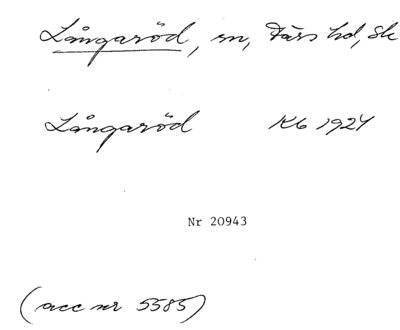 Långaröd, sn, Färs hd, Sk
Långaröd K6 1924
Nr 20943
(acc nr 5585)